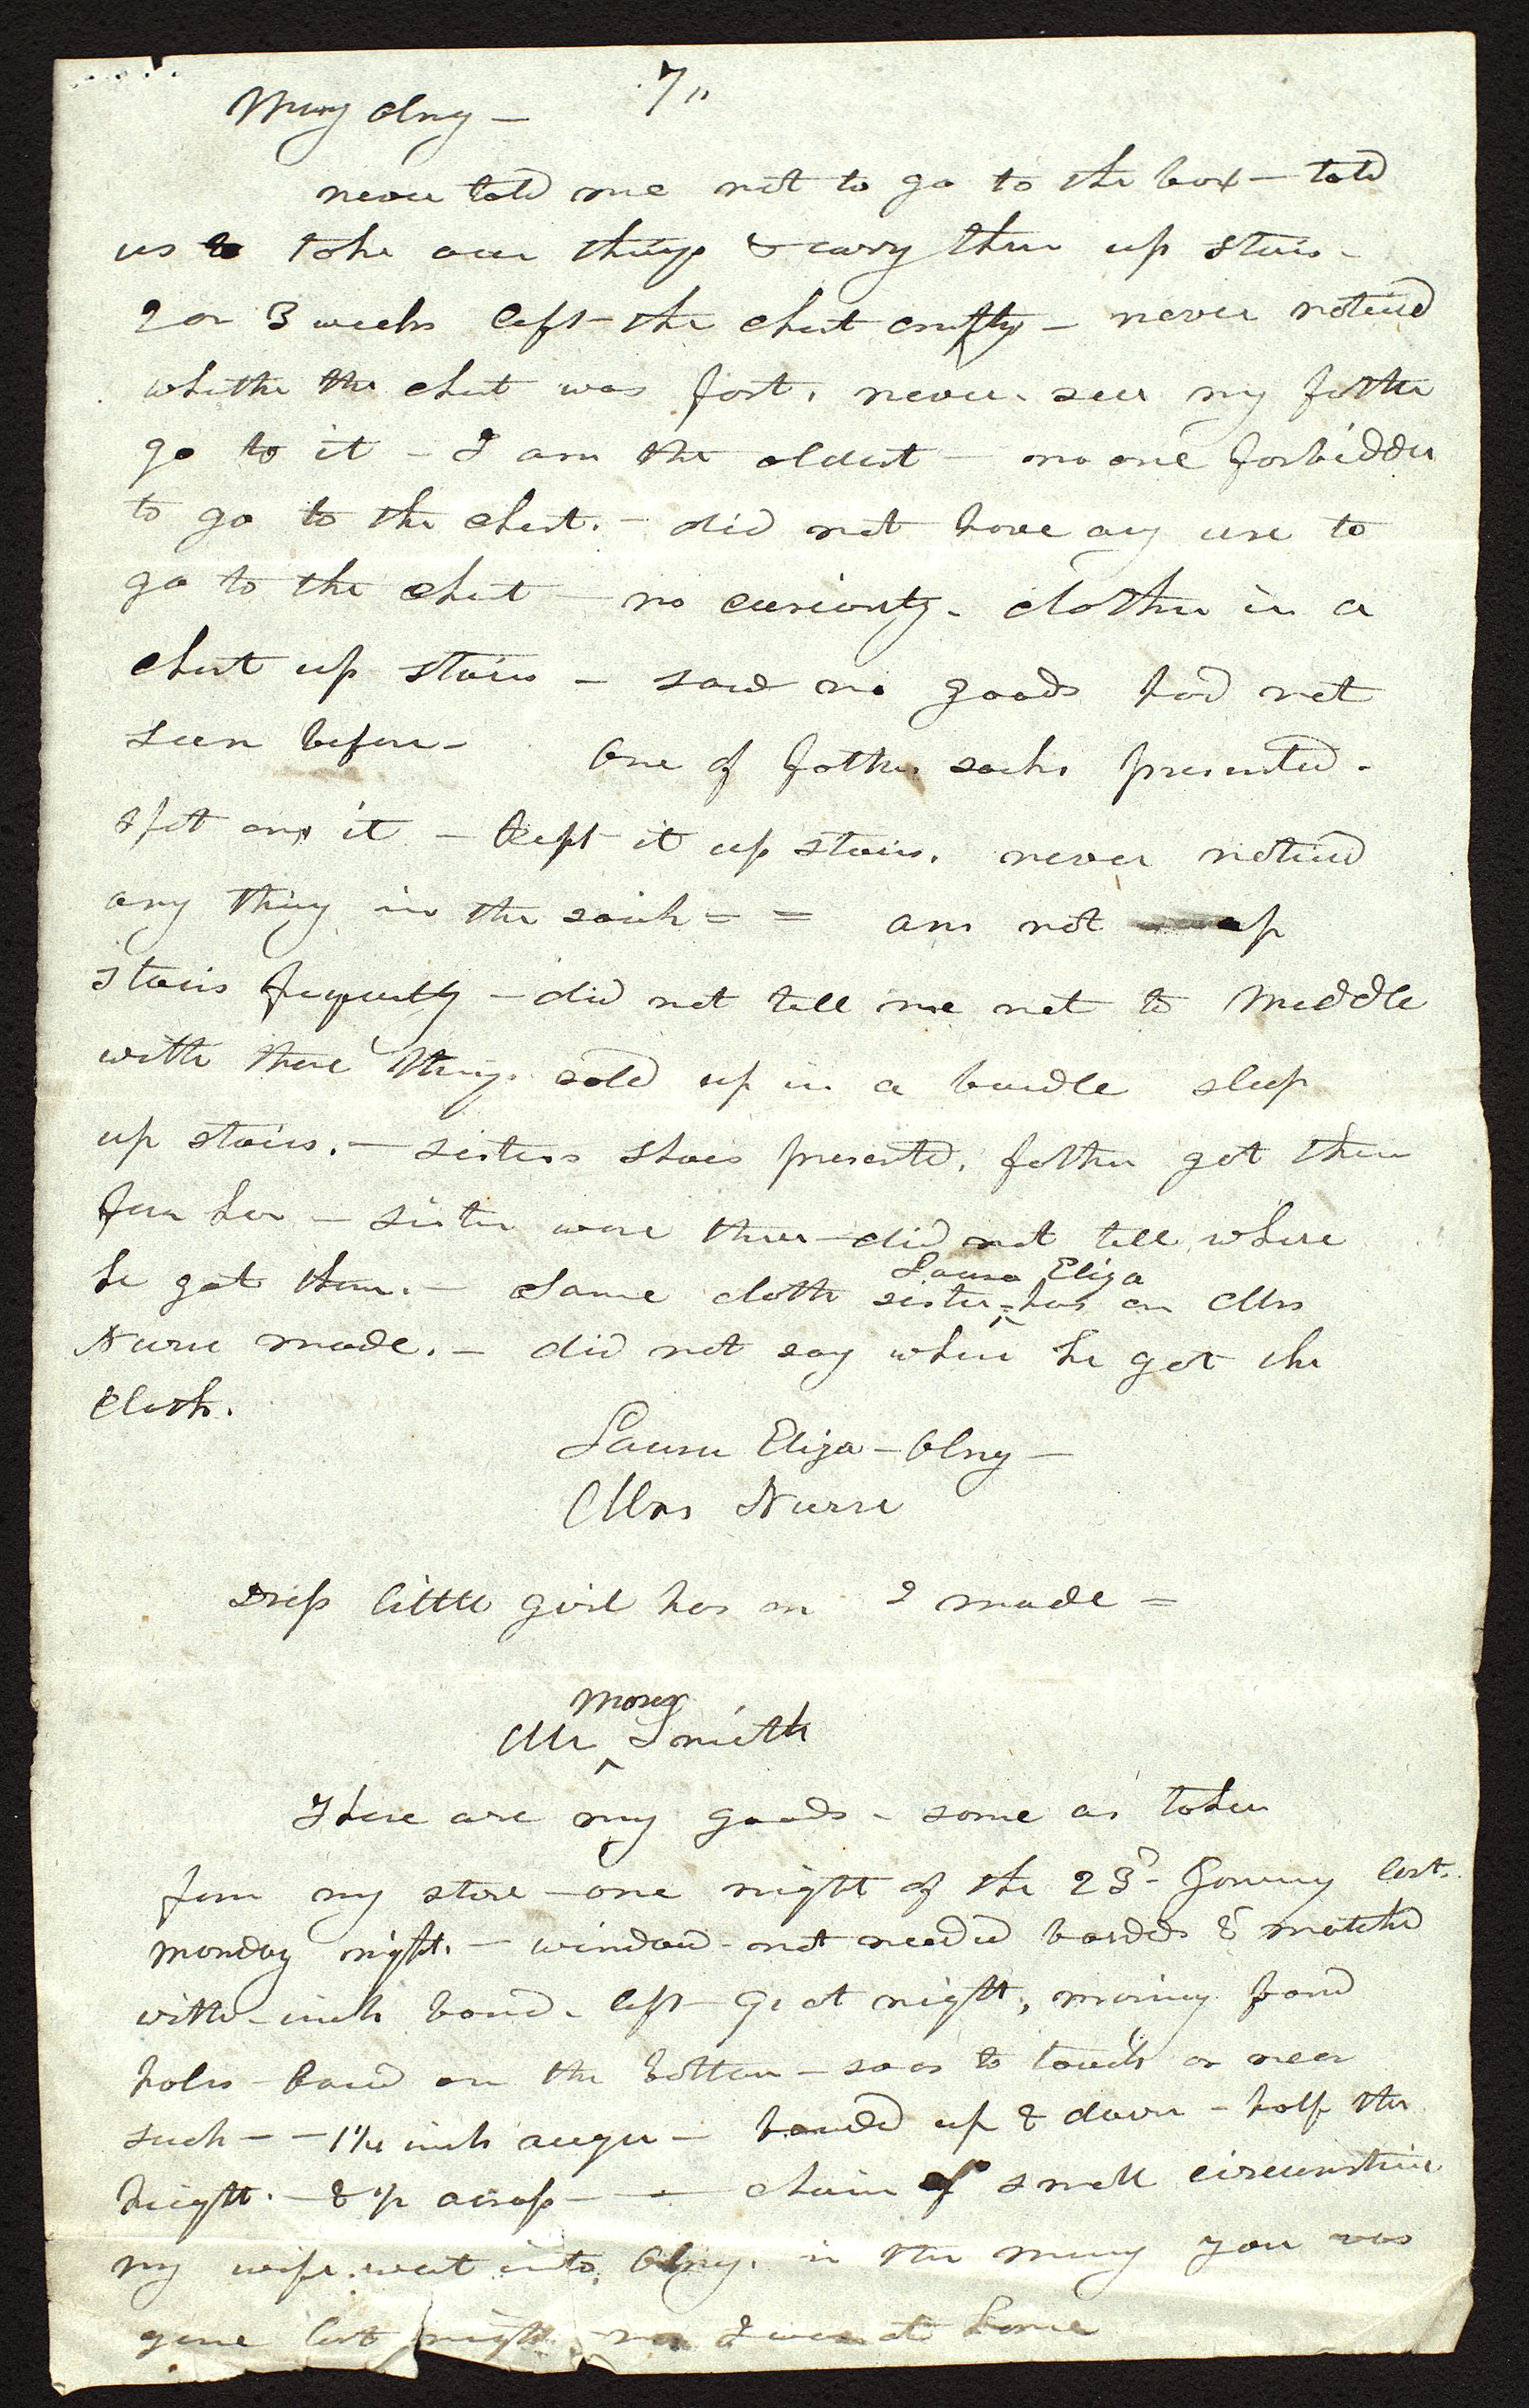 7"
Mary Olny —
never told me not to go to the box — told
us to take our things & carry them up stairs —
2 or 3 weeks left the chest empty — never noticed
whether the chest was fast. never see my father
go to it — I am the oldest — no one forbidden
to go to the chest. — did not have any use to
go to the chest — no curiosity — clothes in a
chest up stairs — saw no goods had not
seen before — One of fathers socks presented —
spit on it — kept it up stairs. never noticed
any thing in the = = am not up
stairs frequently — did not tell me not to meddle
with these things. up in a bundle sleep
up stairs. — sisters shoes presented. father got them
for her — sister wore them — did not tell where
he got them. — Same cloth sister = Laura Eliza has on Mrs
Nurse made. — did not say where he got the
Cloth.
Laura Eliza — Olny —
Mrs Nurse
Dress little girl has on I made =
Mr Moses Smith
These are my goods — some as taken
from my store — one night of the 23d January last.
monday night. — window not needed boarded & matched
with inch board. left 9 at night, morning found
holes bored on the bottom — so as to touch or near
such — — 1 1/4 inch auger — up & down — half the
height. — & up across — — chain of small circumstance
my wife went into Olny. in the morning you was
gone last night no I was at home